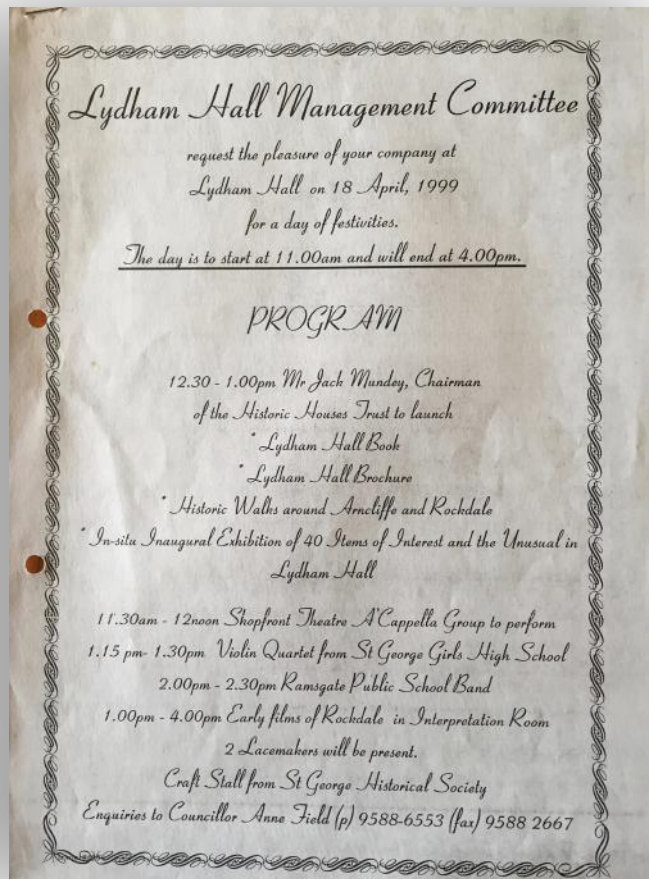 Lydham Hall Management Committee
request the pleasure of your company at
Lydham Hall on 18 April, 1999
for a day of festivities.
The day is to start at 11.00am and will end at 4.00pm.
PROGRAM
12.30 - 1.00pm Mr Jack Mundey, Chairman
of the Historic Houses Trust to launch
* Lydham Hall Book
* Lydham Hall Brochure
* Historic Walks around Arncliffe and Rockdale
* In-situ Inaugural Exhibition of 40 Items of Interest and the Unusual in
Lydham Hall
11.30am - 12noon Shopfront Theatre A'Cappella Group to perform
1.15 pm- 1.30pm Violin Quartet from St George Girls High School
2.00pm - 2.30pm Ramsgate Public School Band
1.00pm - 4.00pm Early films of Rockdale in Interpretation Room
2 Lacemakers will be present.
Craft Stall from St George Historical Society
Enquiries to Councillor Anne Field (p) 9588-6553 (fax) 9588 2667